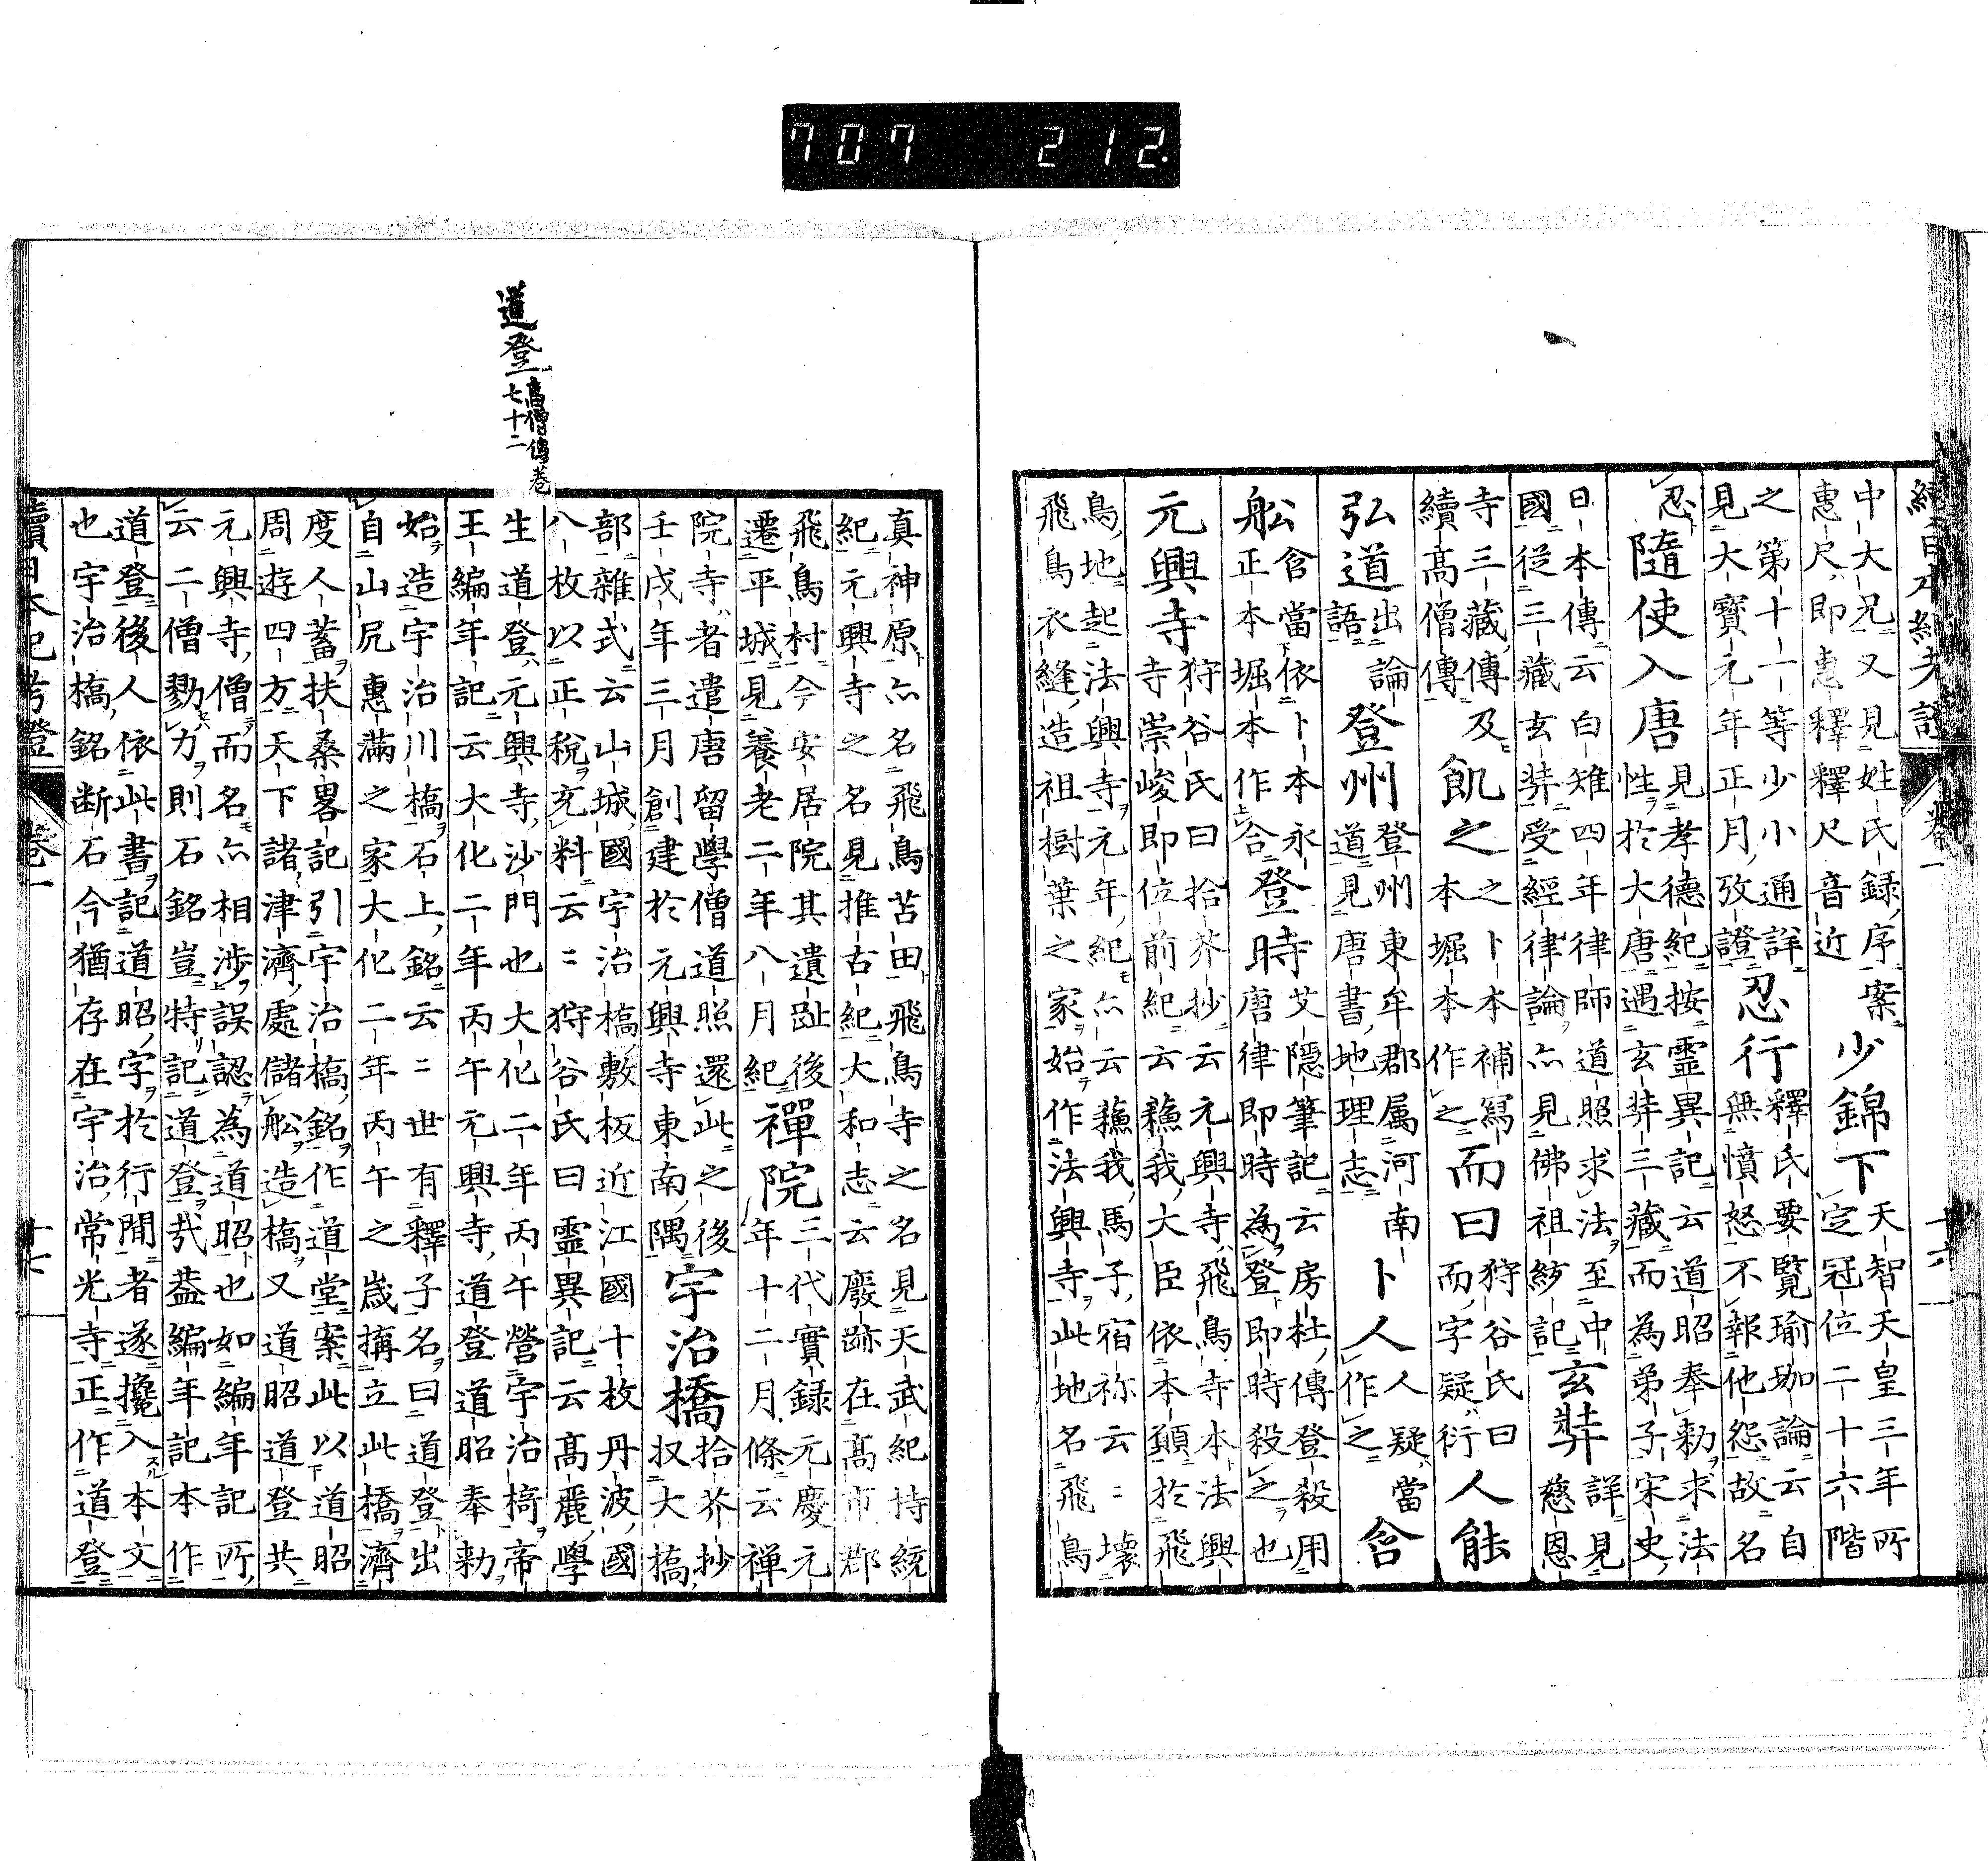 707 212.
續日本紀考證 卷一 十六
中大兄又見姓氏録序案
惠尺即惠釋釋尺音近
少錦下
天智天皇三年所
定冠位二十六階
之第十一等少小通詳
見大寶元年正月攷證
忍行
釋氏要覽瑜珈論云自
無憤怒不報他怨故名
忍
隨使入唐
見孝德紀按靈異記云道昭奉勅求法
性於大唐遇玄弉三藏而為弟子宋史
日本傳云白雉四年律師道照求法至中
國從三藏玄弉受經律論亦見佛祖紗記
玄弉
詳見
慈恩
寺三藏傳及
續髙僧傳
飢之
之卜本補寫
本堀本作之
而曰
狩谷氏曰
而字疑衍
人能
弘道
出論
語
登州
登州東牟郡属河南
道見唐書地理志
卜人
人疑當
作之
含
舩
含當依卜本永
正本堀本作合
登時
艾隱筆記云房杜傳登殺用
唐律即時為登即時殺之也
元興寺
狩谷氏曰拾芥抄云元興寺飛鳥寺本法興
寺崇峻即位前紀云蘓我大臣依本願於飛
鳥地起法興寺元年紀亦云蘓我馬子宿祢云〻壞
飛鳥衣縫造祖樹葉之家始作法興寺此地名飛鳥
真神原亦名飛鳥苫田飛鳥寺之名見天武紀持統
紀元興寺之名見推古紀大和志云廢跡在髙市郡
飛鳥村今安居院其遺趾後
遷平城見養老二年八月紀
禪院
三代實録元慶元
年十二月條云禅
院寺者遣唐留學僧道照還此之後
壬戌年三月創建於元興寺東南隅
宇治橋
拾芥抄
扠大槗
部雜式云山城國宇治槗敷板近江國十枚丹波國
八枚以正税充料云〻狩谷氏曰靈異記云髙麗學
道登
髙僧傳卷
七十二
生道登元興寺沙門也大化二年丙午營宇治槗帝
王編年記云大化二年丙午元興寺道登道昭奉勅
始造宇治川槗石上銘云〻世有釋子名曰道登出
自山尻惠滿之家大化二年丙午之歳搆立此橋濟
度人蓄扶桑畧記引宇治槗銘作道堂案此以道昭
周遊四方天下諸津濟處儲舩造槗又道昭道登共
元興寺僧而名亦相渉誤認為道昭也如編年記所
云二僧勠力則石銘豈特記道登㦲葢編年記本作
道登後人依此書記道昭字於行間者遂攙入本文
也宇治槗銘断石今猶存在宇治常光寺正作道登
續日本紀考證 卷一 十七